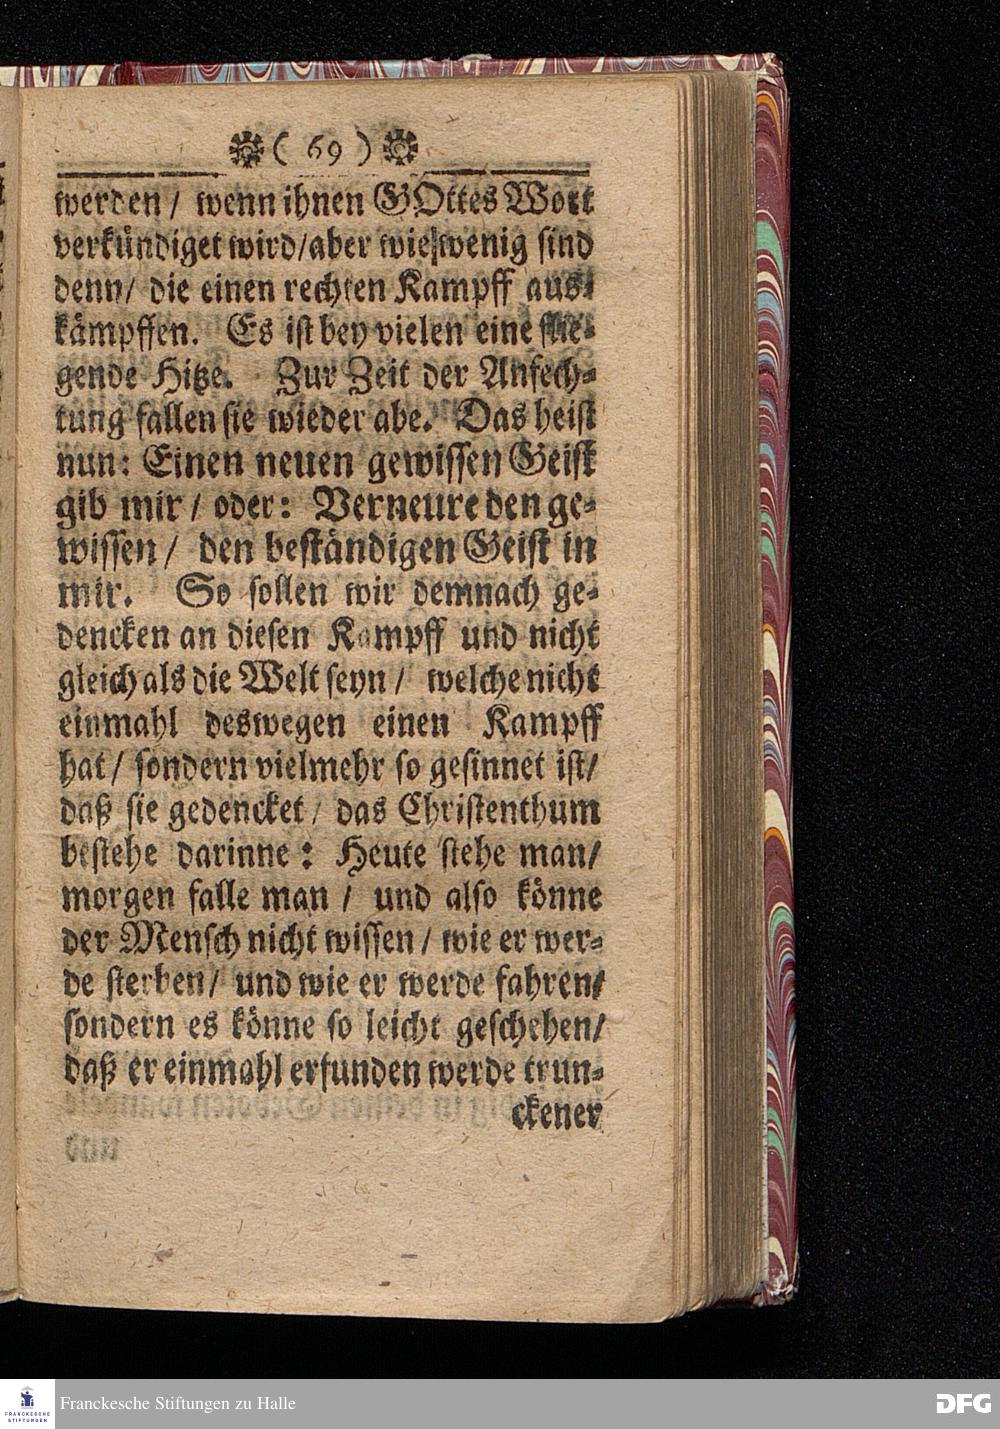 ( 69 )
werden / wenn ihnen GOttes Wort
verkündiget wird/aber wie wenig sind
denn/ die einen rechten Kampff aus-
kämpffen. Es ist bey vielen eine flie-
gende Hitze. Zur Zeit der Anfech-
tung fallen sie wieder abe. Das heist
nun: Einen neuen gewissen Geist
gib mir / oder: Verneure den ge-
wissen / den beständigen Geist in
mir. So sollen wir demnach ge-
dencken an diesen Kampff und nicht
gleich als die Welt seyn / welche nicht
einmahl deswegen einen Kampff
hat / sondern vielmehr so gesinnet ist/
daß sie gedencket / das Christenthum
bestehe darinne : Heute stehe man/
morgen falle man / und also könne
der Mensch nicht wissen / wie er wer-
de sterben/ und wie er werde fahren/
sondern es könne so leicht geschehen/
daß er einmahl erfunden werde trun-
ckener
Franckesche Stiftungen zu Halle
FRANCKESCHE
STIFTUNGEN
DFG